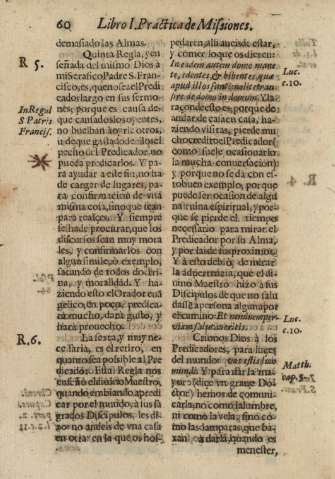 60 Libro I. Practica de Missiones.
demasiado las Almas.
R 5.
Quinta Regla, y en
señada del mismo Dios à
mi Serafico Padre S. Fran-
cisco, es, que no sea el Predi
cador largo en sus sermo-
In Regul
S Patris
Francis.
nes, porque es causa de
que cansados los oyentes,
no buelvan à oir otros,
u de que gastado de allo el
presto su l Predicador no
pueda predicarlos. Y pa-
ra ayudar a este fin, no ha
de cargar de lugares, pa-
ra confirmacion de vna
misma cosa, sino que sean
para realçes. Y siempre
se ha de procurar, que los
discursos sean muy mora
les, y confirmarlos con
algun simile, ò exemplo,
sacando de todos doctri-
na, y moralidad. Y ha-
ziendo esto el Orador eua
gelico, en poca, predica-
rà mucho, darà gusto, y
harà prouecho.
R. 6.
La sexta, y muy ne-
cessaria, es el retiro, en
quanto sea possible al Pre
dicador. Esta Regla nos
enseñò el diuino Maestro,
quando embiando apredi
car por el mundo, à sus sa
grados Discipulos, les di-
xo: no andeis de vna casa
en otra: en la que os hos-
pedaren, alli aueis de estar,
y comer lo que os dieren:
In eadem autem domo mane-
te, edentes, & bibentes, quæ
apud illos sunt: nolite transi-
re de domo in domum.
Luc.
c. 10.
Y la
razon de esto es, porque do
andar de casa en casa, ha-
ziendo visitas, pierde mu-
cho credito el Predicador:
(como suele ocasionarlo
la mucha conuersacion)
y porque no se dà con es-
to buen exemplo, porque
puede ser ocasion de algu
na ruina espiritual, y por-
que se pierde el tiempo
necessario para mirar el
Predicador por su Alma,
y por las de sus proximos.
Y à este
la aduertencia, que el di-
uino Maestro hizo à sus
Discipulos de que no salu
dasse à persona alguna por
el camino: Et neminem per
viam salutaueritis.
Luc.
c. 10.
Crionos Dios à los
Predicadores, para luces
del mundo: vos estis lux
mundi.
Matth.
cap. 5
Y para
(dize vn graue Do-
ctor) hemos de comuni-
carla, no como la lumbre,
ni como la vela, sino có-
mo las lamparas, que ba-
xan à darla, quando es
menester,